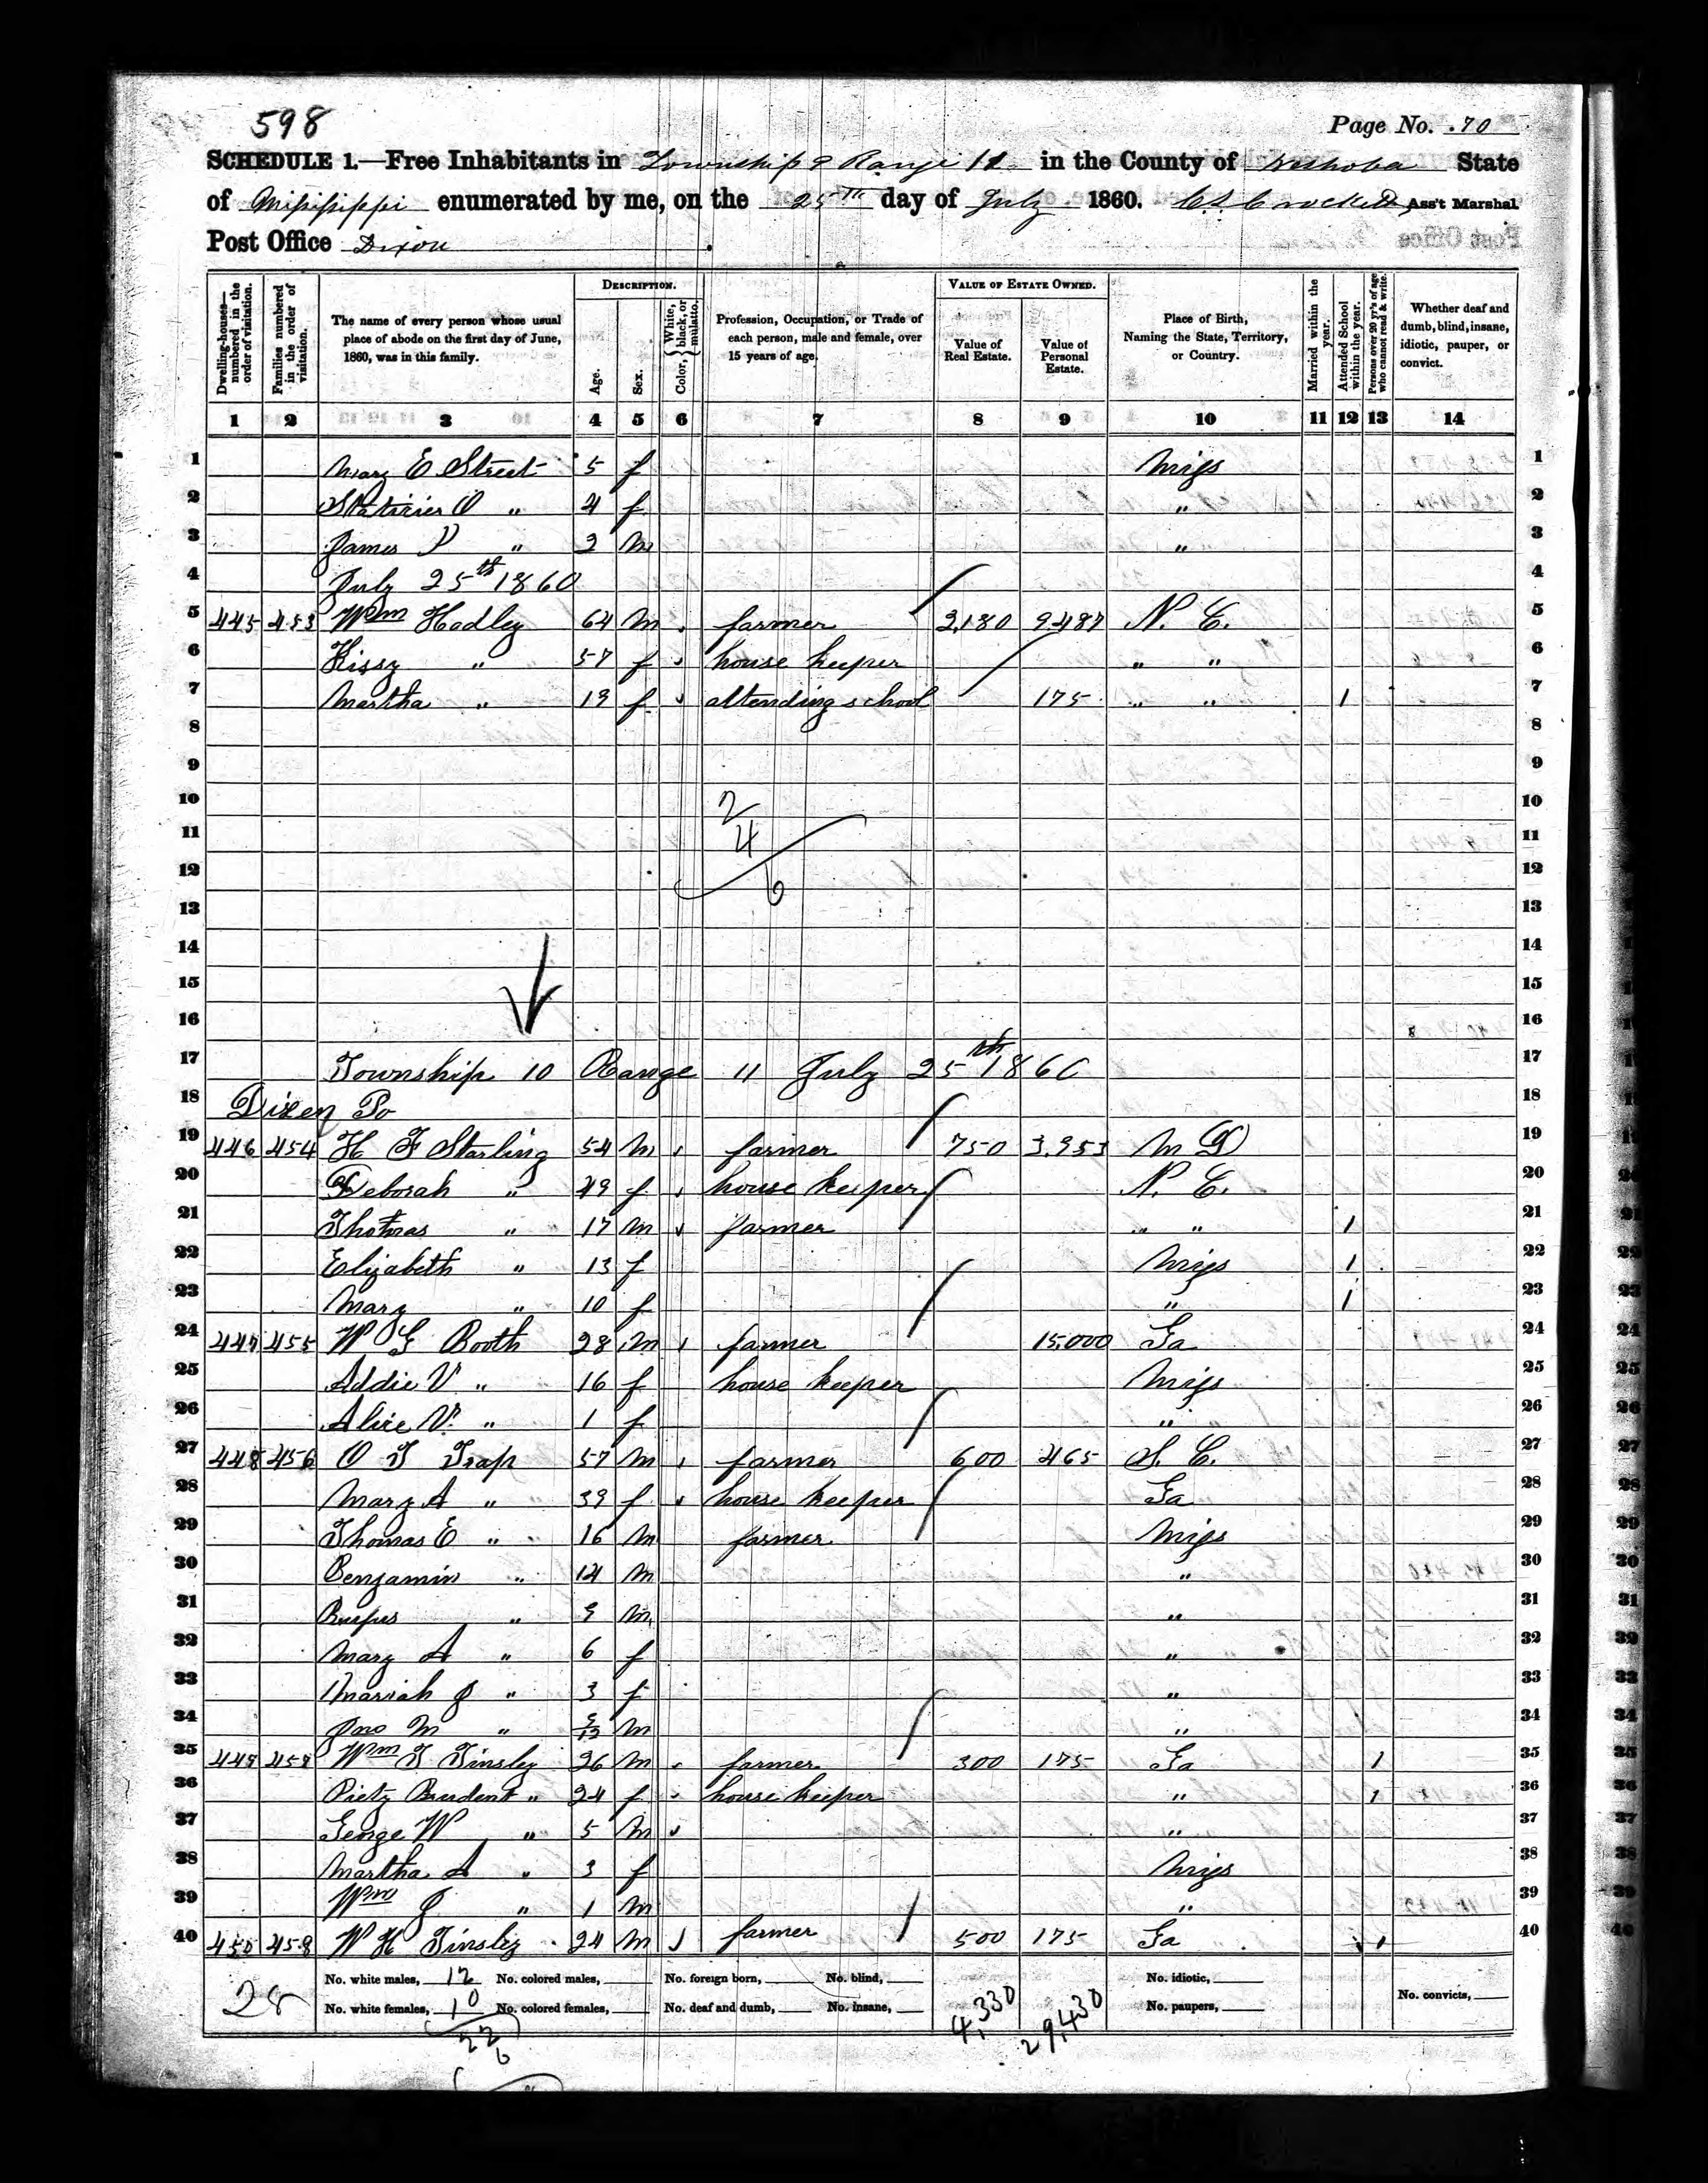 598
Page No. 70
SCHEDULE 1.—Free Inhabitants in Township 9 Range 11 in the County of Neshoba State
of Mississippi enumerated by me, on the 25th day of July 1860. Ass't Marshal
Post Office Dixon
Dwelling-houses—numbered in the order of visitation.
Families numbered in the order of visitation.
The name of every person whose usual place of abode on the first day of June, 1860, was in this family.
DESCRIPTION.
Age.
Sex.
Color, White, black, or mulatto.
Profession, Occupation, or Trade of each person, male and female, over 15 years of age.
VALUE OF ESTATE OWNED.
Value of Real Estate.
Value of Personal Estate.
Place of Birth, Naming the State, Territory, or Country.
Married within the year.
Attended School within the year.
Persons over 20 yr's of age who cannot read & write.
Whether deaf and dumb, blind, insane, idiotic, pauper, or convict.
1 2 3 4 5 6 7 8 9 10 11 12 13 14
1 Mary E Street 5 f Miss 1
2 O " 4 f " 2
3 James P " 2 m " 3
4 July 25th 1860 4
5 445 453 Wm Hadley 64 m farmer 2,180 9487 N. C. 5
6 Kissy " 57 f house keeper " " 6
7 Martha " 19 f attending school 175 " " 1 7
8 8
9 9
10 2 10
11 4 11
12 6 12
13 13
14 14
15 15
16 16
17 Township 10 Range 11 July 25th 1860 17
18 Dixon Po 18
19 446 454 H F Starling 54 m farmer 750 3,953 M D 19
20 Deborah " 49 f house keeper N. C. 20
21 Thomas " 17 m farmer " " 1 21
22 Elizabeth " 13 f Miss 1 22
23 Mary " 10 f " 1 23
24 447 455 W G Booth 28 m farmer 15,000 Ga 24
25 Addie V " 16 f house keeper Miss 25
26 Alice V. " 1 f " 26
27 448 456 O T Trap 57 m farmer 600 465 S. C. 27
28 Mary A " 39 f house keeper Ga 28
29 Thomas E " 16 m farmer Miss 29
30 Benjamin " 14 m " 30
31 Rufus " 9 m " 31
32 Mary A " 6 f " 32
33 Mariah J " 3 f " 33
34 Jno M " m " 34
35 449 Wm T Tinsley 26 m farmer 300 175 Ga 1 35
36 " 24 f house keeper " 1 36
37 George W " 5 m " 37
38 Martha A " 3 f Miss 38
39 Wm J " 1 m " 39
40 450 458 W H Tinsley 24 m farmer 500 175 Ga 1 40
28
No. white males, 12 No. colored males, No. foreign born, No. blind, No. idiotic,
No. white females, 10 No. colored females, No. deaf and dumb, No. insane, 4,330 29,430 No. paupers, No. convicts,
22
6